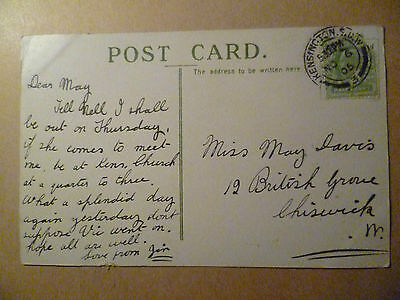 POST CARD.
The address to be written here.
KENSINGTON.
Dear May
Tell Nell, I shall
be out on Thursday,
if she comes to meet
me, be at
Church
at a quarter to three.
What a splendid day
again yesterday, dont
suppose Vic went on.
hope all are well.
Love from
Miss May Davis
12 British Grove
Chiswick
W.